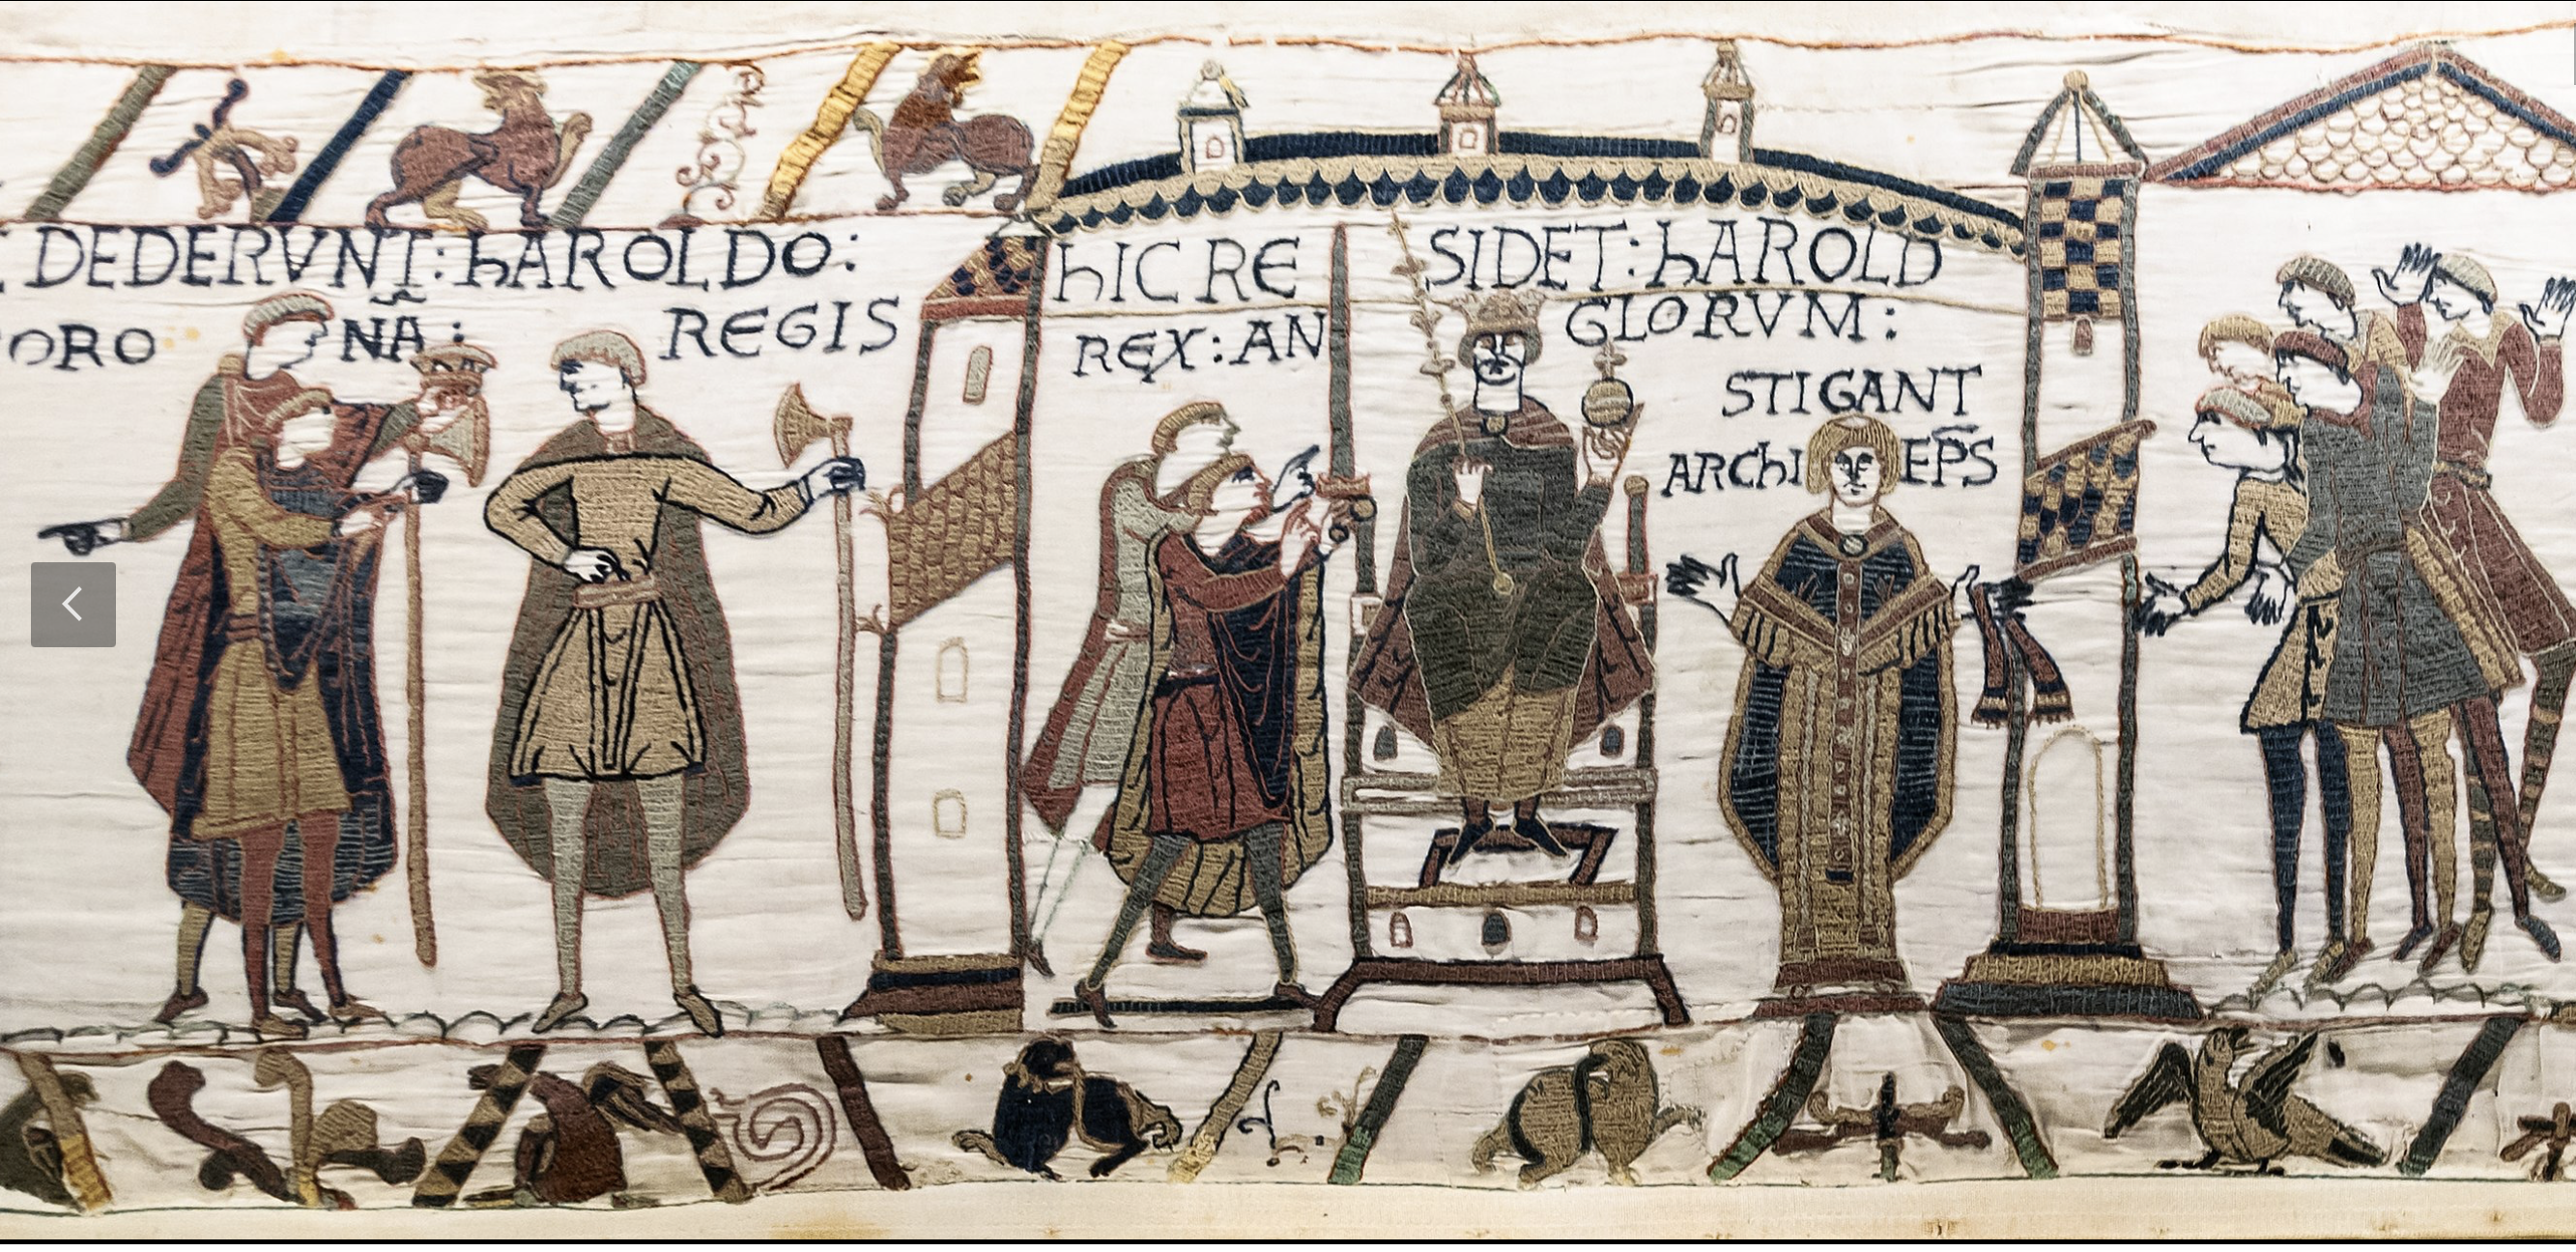 DEDERVNT: hAROLDO:
ORO NÃ: REGIS
hIC RE SIDET: hAROLD
REX: AN GLORVM:
STIGANT
ARChI EP̄S